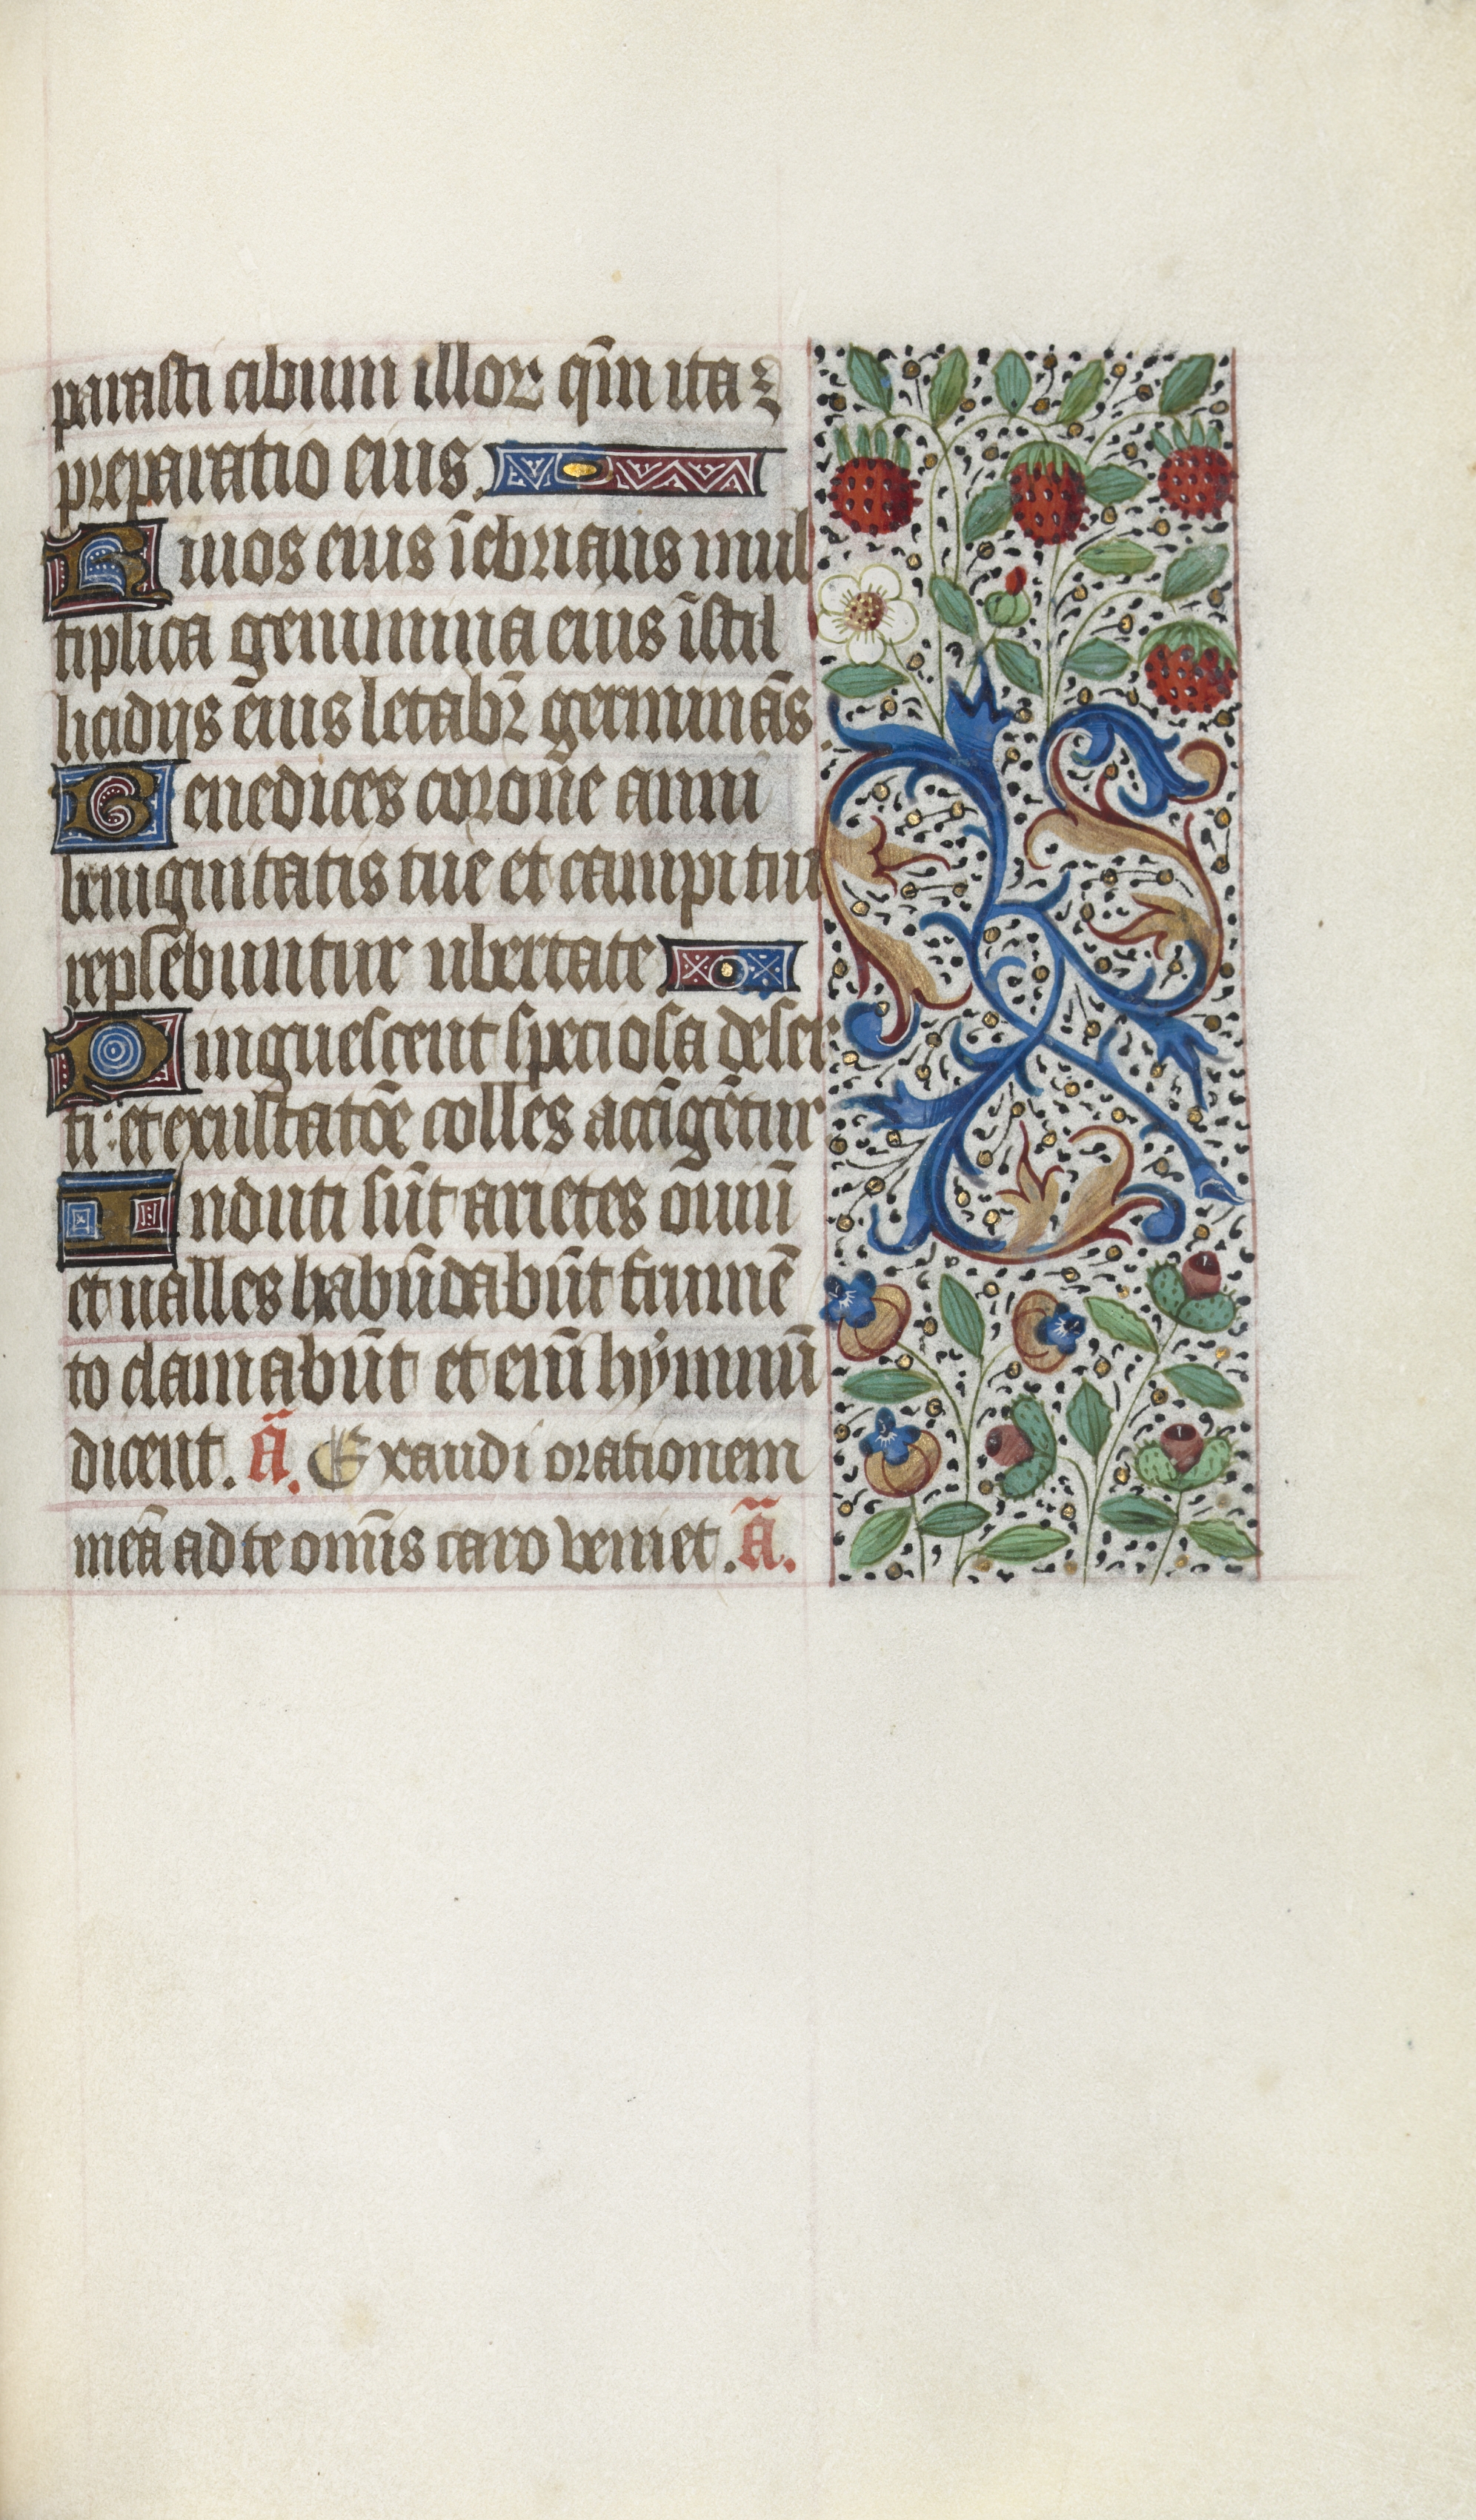 parasti cibum illoꝝ qm̄ ita ē
preparatio eius.
Riuos eius īebrians mul
tiplica genimina eius ī stil
licidijs eius letabr̄ germinās
Benedices corone anni
benignitatis tue et campi tui
replebuntur ubertate
Pinguescent speciosa deser
ti: et exultatōe colles accīgētur
Induti sūt arietes ouiū
et ualles habūdabūt frumē
to clamabūt et eniī hỳmnū
dicent. ā. Exaudi orationem
meā ad te omīs caro veniet. ā.